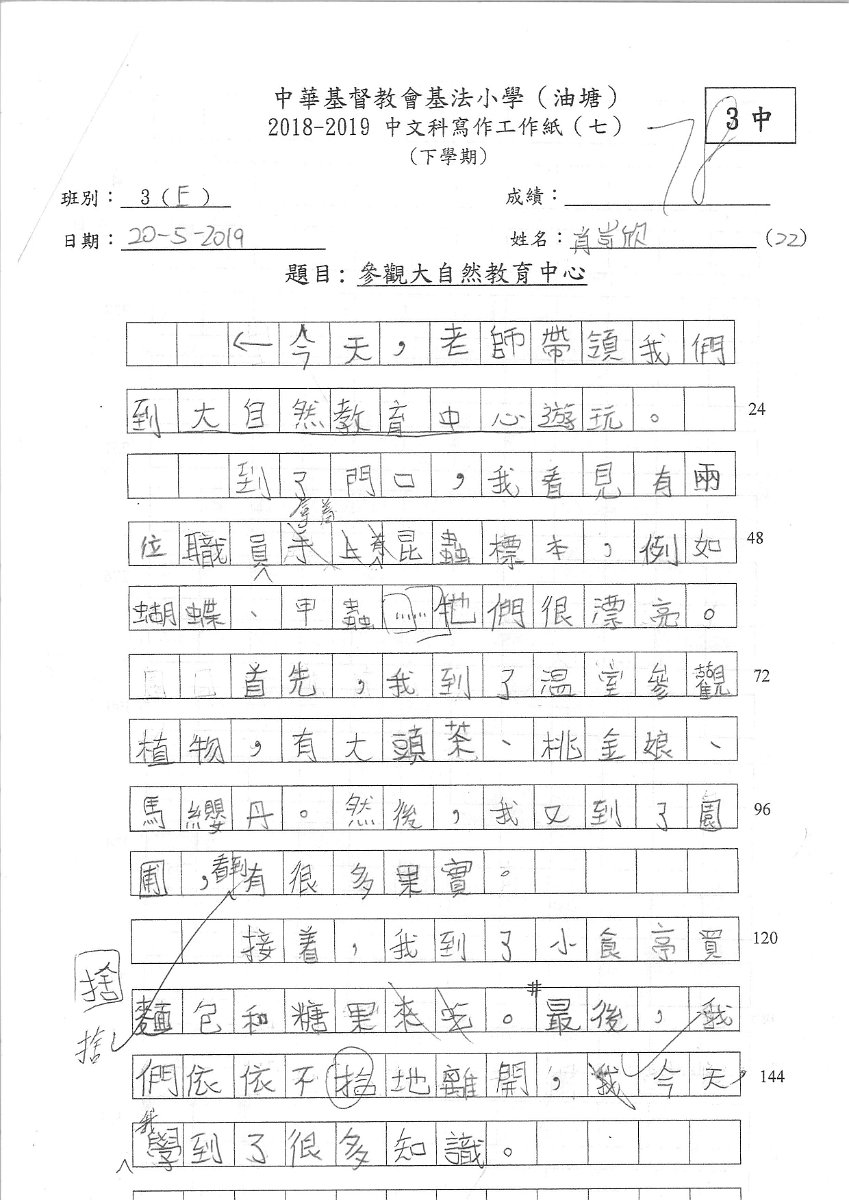 中華基督教會基法小學（油塘）
2018-2019 中文科寫作工作紙（七）
（下學期）
3中
78
班別：3（E）
成績：
日期：20-5-2019
姓名：肖 欣 (22)
題目：參觀大自然教育中心
←今天，老師帶領我們
到大自然教育中心遊玩。 24
到了門口，我看見有兩
拿着
位職員手上拿昆蟲標本，例如 48
蝴蝶、甲蟲……牠們很漂亮。
首先，我到了溫室參觀 72
植物，有大頭茶、桃金娘、
馬纓丹。然後，我又到了園 96
圃，看到有很多果實。
接着，我到了小食亭買 120
捨
麵包和糖果來吃。#最後，我
捨
們依依不捨地離開，我今天， 144
我
學到了很多知識。